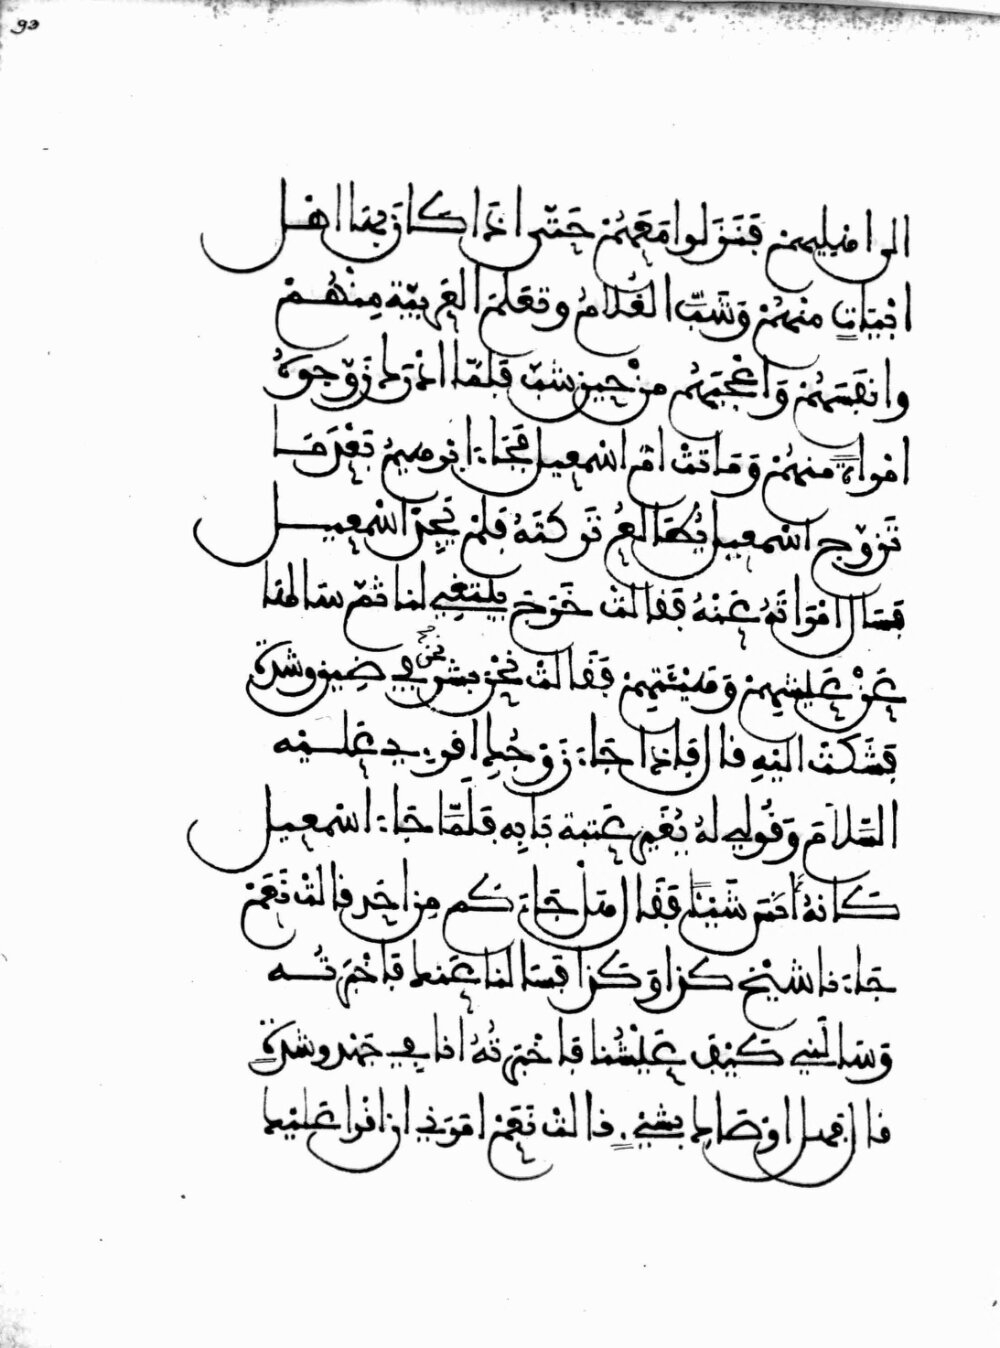 93
الى اهليهم فنزلوا معهم حتى اذا كان بها اهل
ابيات منهم وشب الغلام وتعلم العربية منهم
وانفسهم واعجبهم حين شب فلما ادرك زوجوه
امراة منهم وماتت ام اسمعيل فجاء ابرهيم بعد ما
تزوج اسمعيل يطالع تركته فلم يجد اسمعيل
فسال امراته عنه فقالت خرج يبتغي لنا ثم سالها
عن عيشهم وهيئتهم فقالت نحن بشر نحن في ضيق وشدة
فشكت اليه قال فاذا جاء زوجك اقرءي عليه
السلام وقولي له يغير عتبة بابه فلما جاء اسمعيل
كانه انس شيئا فقال هل جاءكم من احد قالت نعم
جاءنا شيخ كذا وكذا فسالنا عنك فاخبرته
وسالني كيف عيشنا فاخبرته انا في جهد وشدة
قال فهل اوصاك بشيء قالت نعم امرني ان اقرا عليك